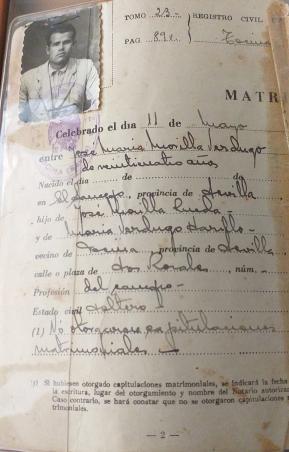 TOMO 23- REGISTRO CIVIL
PAG. 89v. Tocina
MATR
Celebrado el día 11 de Mayo
entre José María Morilla Verdugo
de veinticuatro años
Nacido el día - de - de -
en El Campo, provincia de Sevilla
hijo de José Morilla Rueda
y de María Verdugo
vecino de Tocina provincia de Sevilla
calle o plaza de Los Rosales núm. -
Profesión del campo -
Estado civil soltero -
(1) No otorgaron capitulaciones
matrimoniales. -
(1) Si hubiesen otorgado capitulaciones matrimoniales, se indicará la fecha
la escritura, lugar del otorgamiento y nombre del Notario autoriza
Caso contrario, se hará constar que no se otorgaron capitulaciones
trimoniales.
— 2 —